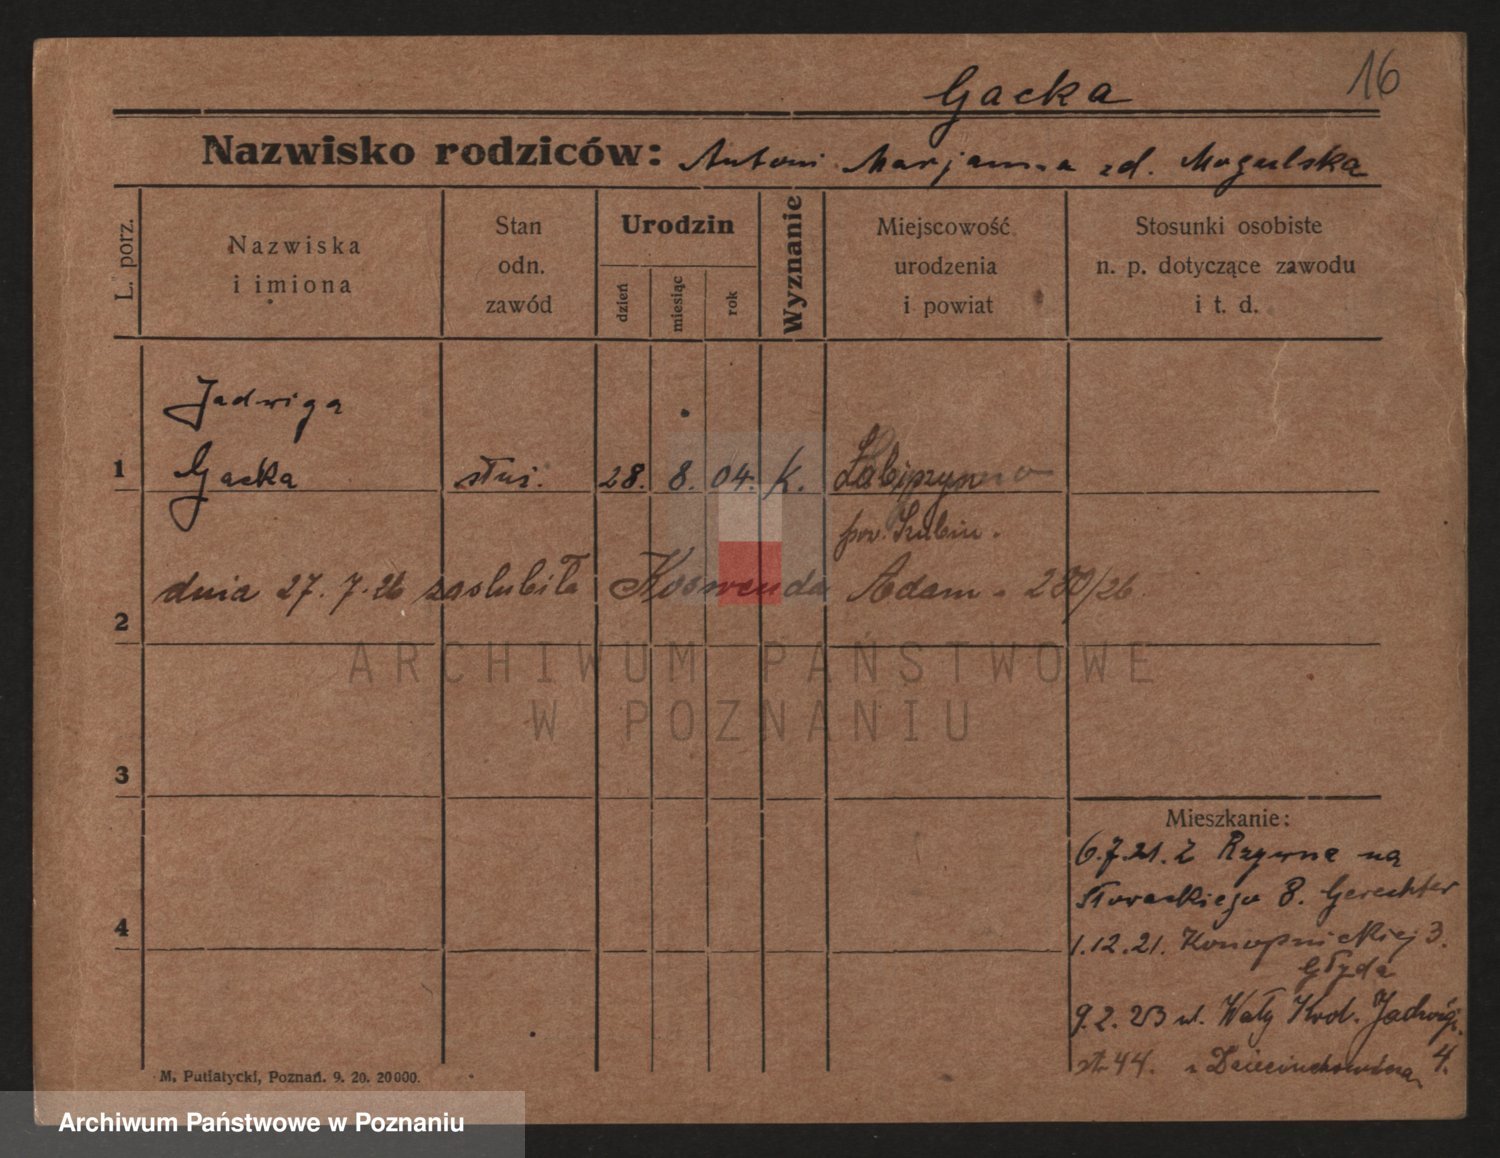 Gacka
16
Nazwisko rodziców: Antoni Marjanna zd. Mogulska
L. porz.
Nazwiska
i imiona
Stan
odn.
zawód
Urodzin
dzień
miesiąc
rok
Wyznanie
Miejscowość
urodzenia
i powiat
Stosunki osobiste
n. p. dotyczące zawodu
i t. d.
Jadwiga
1 Gacka służ. 28. 8. 04. K. Łabiszyn
pow. Szubin.
dnia 27. 7. 26 zaslubiła Adam
2
ARCHIWUM PAŃSTWOWE
W POZNANIU
3
Mieszkanie:
6.7.21. z na
Słowackiego 8. Gerechter
4
1.12.21. Konopnickiej 3.
Głyda
9.2.23 ul. Wały Król. Jadwigi
44. 4.
M. Putiatycki, Poznań. 9. 20. 20000.
Archiwum Państwowe w Poznaniu